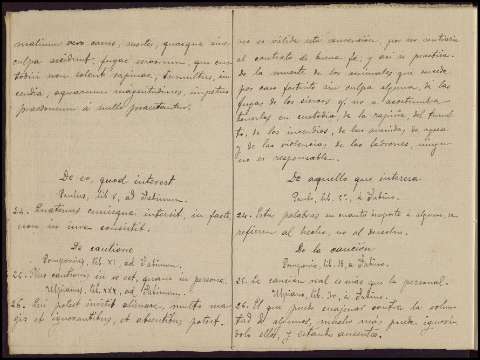 malium vero casus, mortes, quaeque sine
culpa accidunt, fugae servorum, qui cus-
todiri non solent rapinae, tumultus, in-
cendia, aquarum magnitudines, impetus
praedonum à nullo praestantur.
De eo, quod interest
Paulus, lib. V, ad Sabinum.
24. Quatenus cuiusque intersit, in facto,
non in iure consistit.
De cautione
Pomponius, lib. XI, ad Sabinum.
25. Plus cautionis in re est, quam in persona.
Ulpianus, lib. XXX, ad Sabinum.
26. Qui potest invitis alienare, multo ma-
gis et ignorantibus, et absentibus potest.
no es válida esta convención, por ser contraria
al contrato de buena fe; y así se practica.
De la muerte de los animales que sucede
por caso fortuito sin culpa alguna, de las
fugas de los siervos q. no se acostumbra
tenerlos en custodia, de la rapiña, del tumul-
to, de los incendios, de las avenidas de aguas
y de las violencias de los ladrones, ningu-
no es responsable.
De aquello que interesa
Paulo, lib. 5º, a Sabino.
24. Estas palabras en cuanto importe a alguno, se
refieren al hecho, no al derecho.
De la caución
Pomponio, lib. 11, a Sabino.
25. La caución real es más que la personal.
Ulpiano, lib. 30, a Sabino.
26. El que puede enajenar contra la volun-
tad de algunos, mucho más puede ignorán-
dolo ellos, y estando ausentes.